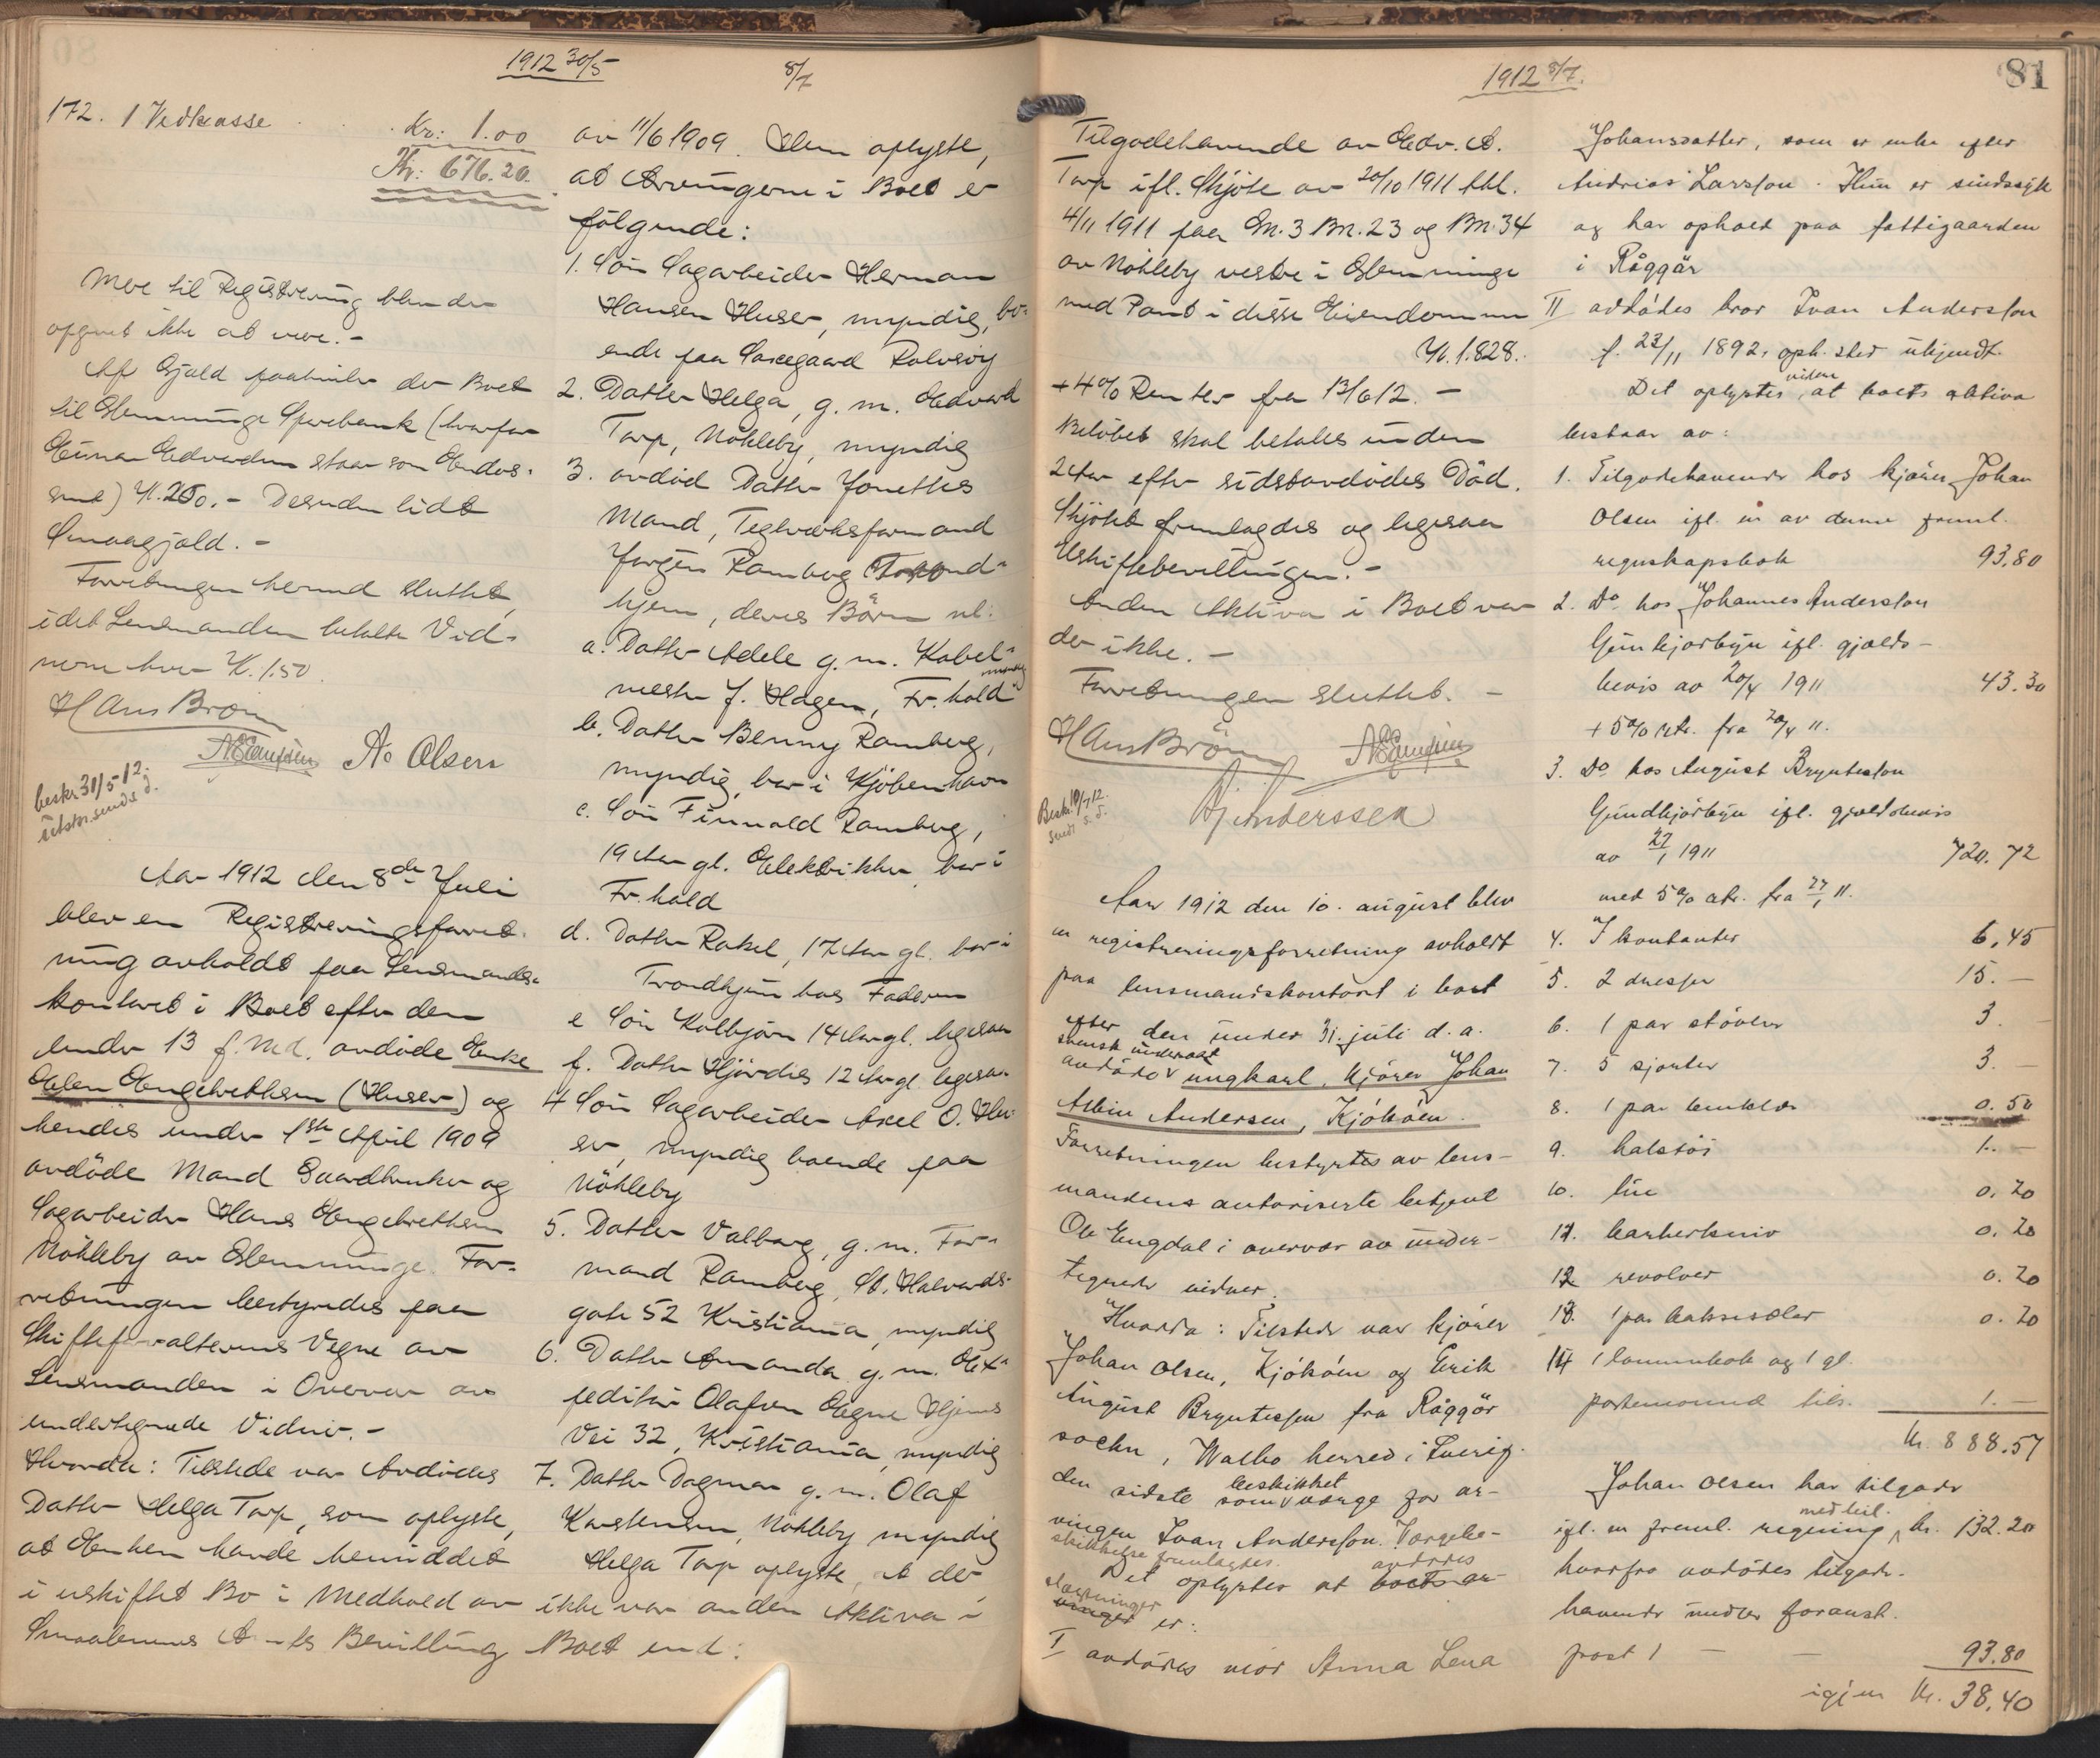 1912 30/5
8/7
172. 1 Vedkasse . . Kr: 1.00
Kr: 676.20.
Mere til Registrering blev der
opgivet ikke at være.-
Af Gjæld paahviler der Boet
til Glemminge Sparebank (hvorfor
Einar Edvardsen staar som Endos-
sent) Kr. 250.- Desuden lidt
Smaagjæld.-
Forretningen hermed sluttet,
idet Lensmanden betalte Vid-
nerne hver Kr. 1.50.
Hans Brøm
A. Olsen
beskr. 31/5 12.
Aar 1912 den 8de Juli
blev en Registreringsforret-
ning avholdt paa Lensmands-
kontoret i Boet efter den
under 13 f. Md. avdøde Enke
Olen Engebrethsen (Huser) og
hendes under 1ste April 1909
avdøde Mand Gaardbruker og
Sagarbeider Hans Engebrethsen
Nøkleby av Glemminge. For-
retningen bestyredes paa
Skifteforvalterens Vegne av
Lensmanden i Overvær av
undertegnede Vidner.-
Hvorda: Tilstede var Avdødes
Datter Helga Torp, som oplyste,
at Enken havde hensiddet
i uskiftet Bo i Medhold av
Smaalenenes Amts Bevilling
av 11/6 1909. Hun oplyste,
at Arvingerne i Boet er
følgende:
1. Søn Sagarbeider Herman
Hansen Huser, myndig, bo-
ende paa Rolvsøy
2. Datter Helga, g. m. Edvard
Torp, Nøkleby, myndig
3. avdød Datter Jonettes
Mand, Teglverksformand
Jørgen Ramberg Trond-
hjem, deres Børn nl:
a. Datter Adele g. m. Kabel-
mester J. Hagen, Fr.hald myndig
b. Datter Benny Ramberg,
myndig, bor i Kjøbenhavn
c. Søn Finnald Ramberg,
19 Aar gl. Elektriker, bor i
Fr.hald
d. Datter Rakel, 17 Aar gl. bor i
Trondhjem hos Faderen
e Søn Kolbjørn 14 Aar gl. ligesaa
f. Datter Hjørdis 12 Aar gl. ligesaa
4 Søn Sagarbeider Axel O. Hu-
ser, myndig boende paa
Nøkleby
5. Datter Valborg, g. m. For-
mand Ramberg, St. Halvards-
gate 52 Kristiania, myndig
6. Datter Amanda g. m. Eks-
peditør Olafsen Hjelms
Vei 32, Kristiania, myndig
7. Datter Dagmar g. m. Olaf
Karstensen, Nøkleby myndig
Helga Torp oplyste, at der
ikke var anden Aktiva i
Boet end:
1912 8/7.
81
Tilgodehavende av Edv. A.
Torp ifl. Skjøte av 20/10 1911 thl.
4/11 1911 paa Gn. 3 Bn. 23 og Bn. 34
av Nøkleby vestre i Glemminge
med Pant i disse Eiendommer
Kr. 1.828.
+ 4% Renter fra 13/6 12. -
Beløbet skal betales inden
2 Aar efter sidstavdødes Død.
Skjøtet fremlagdes og ligesaa
Uskiftebevillingen.-
Anden Aktiva i Boet var
der ikke.-
Forretningen sluttet. -
Hans Brøm
Hj. Anderssen
Beskr. 10/7 12.
sendt s. d.
Aar 1912 den 10. august blev
en registreringsforretning avholdt
paa lensmandskontoret i boet
efter den under 31. juli d. a.
avdøde svensk undersaat ungkarl, kjører Johan
Albin Andersen, Kjøkøen.
Forretningen bestyrtes av lens-
mandens autoriserte betjent
Ole Engdal i overvær av under-
tegnede vidner.
Hvorda: Tilstede var kjører
Johan Olsen, Kjøkøen og Erik
August Bryntesson fra Råggär
socken, Walbo herred i Sverig.
den sidste som beskikket værge for ar-
vingen Ivan Andersson. Værgebe-
skikkelse fremlagdes.
Det oplystes at avdødes boets ar-
slægtninger vinger er:
I avdødes mor Anna Lena
Johansdatter, som er enke efter
Andrias Larsson. Hun er sindssyk
og har ophold paa fattigaarden
i Råggär
II avdødes bror Ivan Andersson
f. 23/11 1892. oph. sted ukjendt.
Det oplystes videre at boets aktiva
bestaar av:
1. Tilgodehavende hos kjører Johan
Olsen ifl. en av denne freml.
regnskapsbok 93.80
2. Do hos Johannes Andersson
ifl. gjælds-
bevis av 20/4 1911 43.30
+ 5% rtr. fra 20/4 11.
3. Do hos August Bryntesson
ifl. gjældsbevis
av 27/1 1911 720.72
med 5% rtr. fra 27/1 11.
4. I kontanter 6,45
5. 2 dresser 15.-
6. 1 par støvler 3.-
7. 5 skjorter 3.-
8. 1 par benklær 0.50
9. halstøi 1.-
10. lue 0.20
11. barberkniv 0.20
12 revolver 0.20
13. 1 par buksesæler 0.20
14 1 lommebok og 1 gl.
portemonnæ tils. 1.-
Kr. 888.57
Johan Olsen har tilgode
ifl. en freml. regning med bil. kr. 132.20
hvorfra avdødes tilgode-
havende under foranst.
post 1 - - 93.80
igjen Kr. 38.40